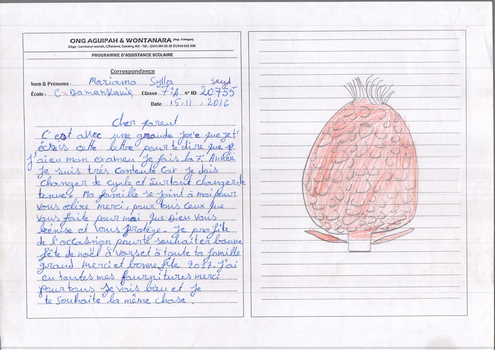 ONG AGUIPAH & WONTANARA
PROGRAMME D'ASSISTANCE SCOLAIRE
Correspondance
Nom & Prénoms : Mariama Sylla
École : Classe 7è A N° ID: 20755
Date 15.11.2016
Cher parent
C'est avec une grande joie que je t'
écris cette lettre pour te dire que
j'ai eu mon examen Je fais la 7è Année
Je suis très contente Car je dois
changer de cycle et surtout changer de
tenue. Ma famille se joint à moi pour
vous dire merci, pour tous ceux que
vous faite pour moi que Dieu vous
bénisse et vous protège. Je profite
de l'occasion pour te souhaiter bonne
fête de noël à vors et à toute ta famille
grand merci et bonne fête 2017. J'ai
eu toutes mes fournitures merci
pour tous je vais bien et je
te souhaite la même chose.